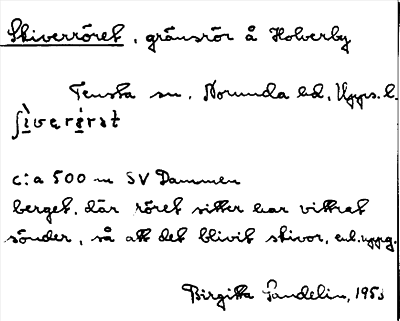 Skiverröret, gränsrör å Holverby
Tensta sn, Norunda hd, Upps. l.
ʃìverö̀rət
c:a 500 m SV Dammen
berget, där röret sitter har vittrat
sönder, så att det blivit skivor, enl. uppg.
Birgitta Sandelin, 195